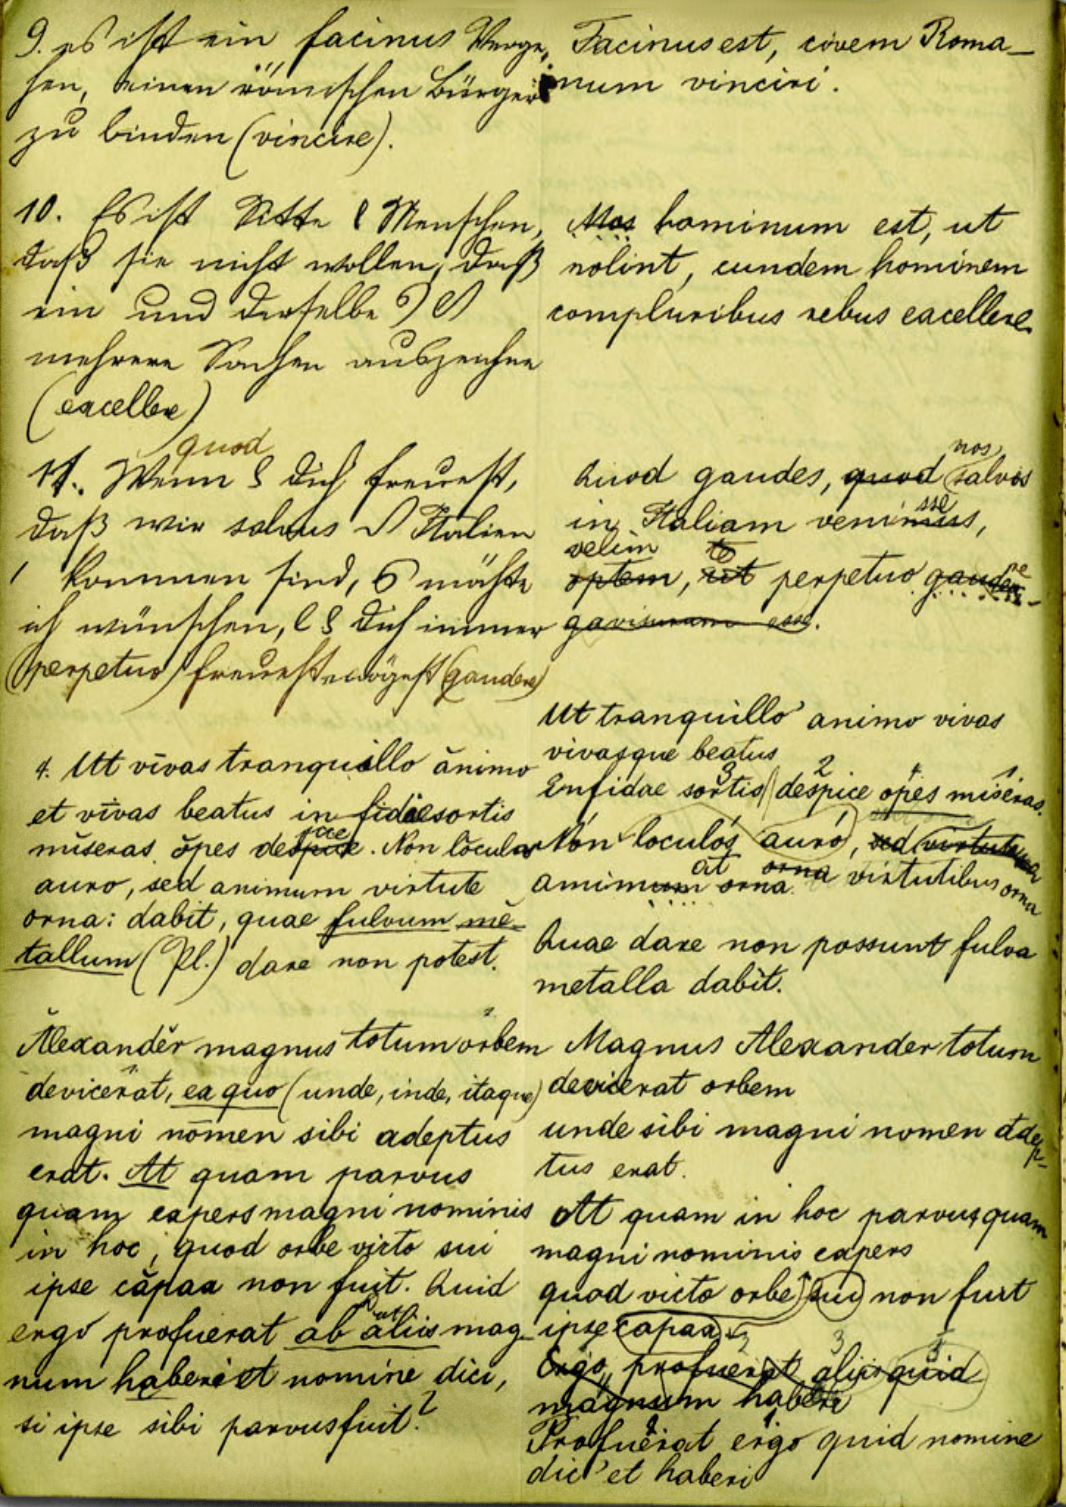 9. es ist ein facinus Verge,
hen, einen römischen Bürger
zu binden (vincire).
Facinus est, civem Roma-
num vinciri.
10. Es ist Sitte Menschen,
daß sie nicht wollen, daß
ein und derselbe
mehrere Sachen auszeichne
(excellere)
Mos hominum est, ut
nolint, eundem hominem
compluribus rebus excellere
quod
11. Wenn dich freuest,
daß wir salvus Italien
kommen sind, möchte
ich wünschen, dich immer
(perpetuo) freuest mögest (gaudere)
nos
Quod gaudes, quod salvos
sse
in Italiam venimus,
velim te
optem, ut perpetuo gaudere
gavisuram esse.
4. Ut vīvas tranquillo ănimo
et vīvas beatus in fidae sortis
mĭseras ŏpes despice. Non lŏculos
auro, sed animum virtute
orna: dabit, quae fulvum mĕ-
tallum (Pl.) dare non potest.
Ut tranquillo animo vivas
vivasque beatus
3 2 4 1
Infidae sortis despice opes miseras.
Non loculos auro, sed virtute
at orna
animum orna virtutibus orna
Quae dare non possunt fulva
metalla dabit.
Ălexandĕr magnus totum orbem
devicerat, ea quo (unde, inde, itaque)
magni nōmen sibi adeptus
erat. At quam parvus
quam expers magni nominis
in hoc, quod orbe victo sui
ipse căpax non fuit. Quid
ergo profuerat ab aliis mag-
num haberi et nomine dici,
si ipse sibi parvus fuit?
Magnus Alexander totum
devicerat orbem
unde sibi magni nomen adep-
tus erat.
At quam in hoc parvus quam
magni nominis expers
quod victo orbe sui non fuit
ipse capax
Ergo profuerat aliis quid
magnum haberi
Profuerat ergo quid nomine
dici et haberi